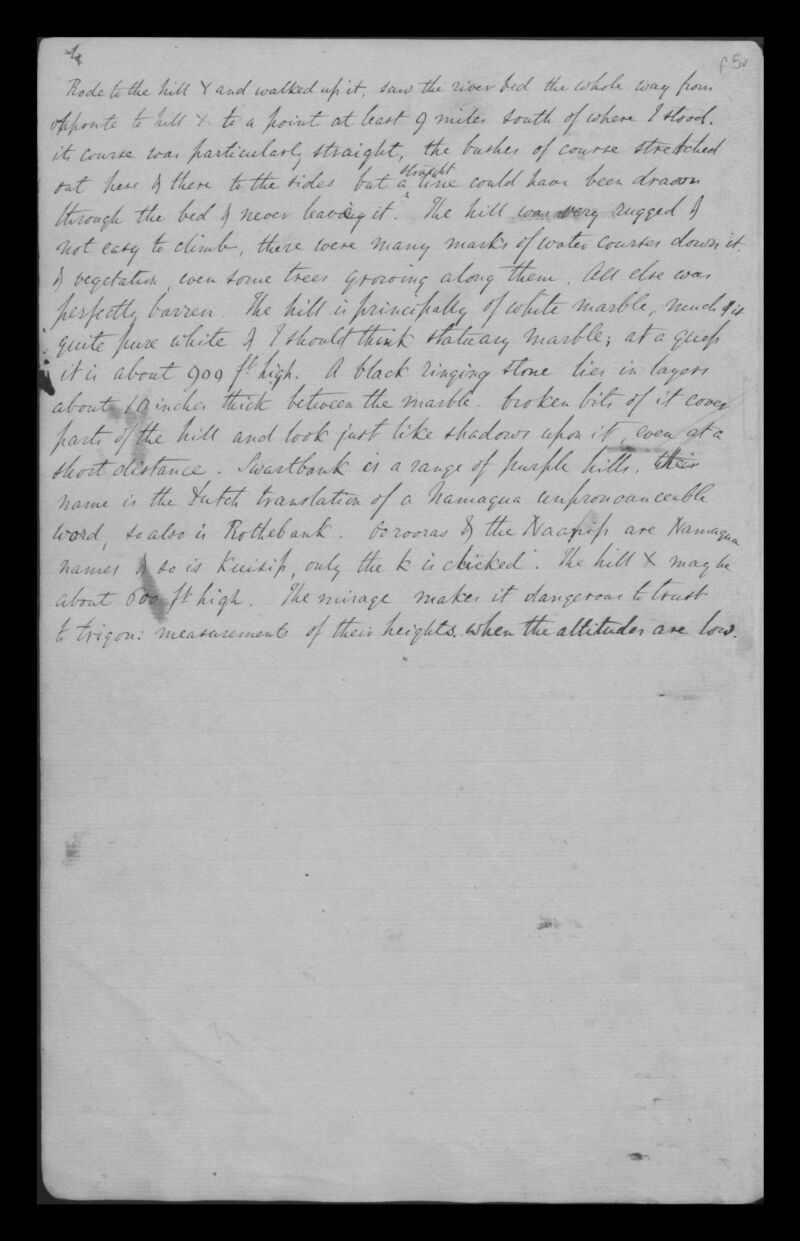 4
f 5v
Rode to the hill Y and walked up it. saw the river bed the whole way from
opposite to hill X to a point at least 9 miles south of where I stood.
its course was particularly straight, the bushes of course stretched
out here & there to the sides but a straight line could have been drawn
through the bed & never leaving it. The hill was very rugged &
not easy to climb, there were many marks of water courses down it
& vegetation, even some trees growing along them. All else was
perfectly barren. The hill is principally of white marble, much of it
quite pure white & I should think statuary marble; at a guess
it is about 900 ft high. A black ringing stone lies in layers
about 10 inches thick between the marble. broken bits of it cover
parts of the hill and look just like shadows upon it, even at a
short distance. Swartbank is a range of purple hills, their
name is the Dutch translation of a Namaqua unpronounceable
word, so also is Rothebank. Oorooras & the Naanip are Namaqua
names & so is Kuisip, only the k is clicked. The hill X may be
about 600 ft high. The mirage makes it dangerous to trust
to trigon: measurements of their heights when the altitudes are low.